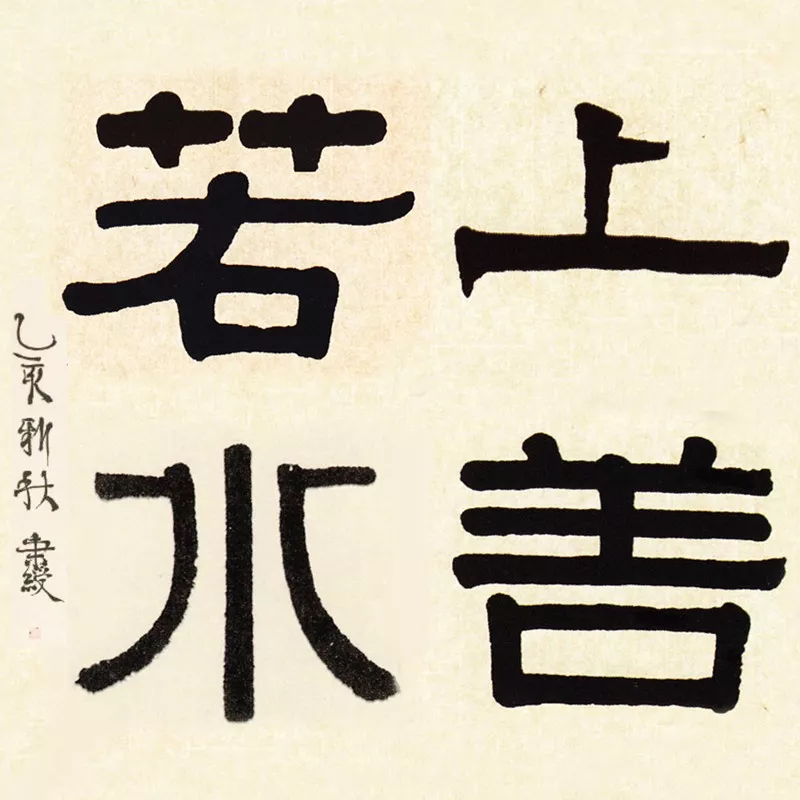 上善
若水
乙亥新秋